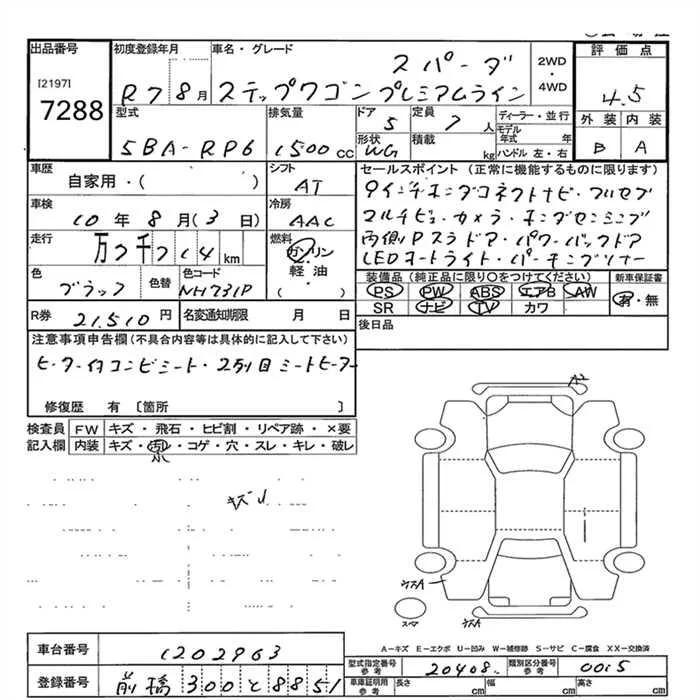 出品番号
[2197]
7288
初度登録年月
R7 8月
車名・グレード
スパーダ
ステップワゴン プレミアムライン
2WD
・
4WD
評価点
4.5
外装 内装
B A
型式
5BA-RP6
排気量
1500 cc
ドア
5
定員
7 人
形状
WG
積載
kg
ディーラー・並行
モデル年式 年
ハンドル 左・右
車歴
自家用・( )
シフト
AT
車検
10年 8月 (3日)
冷房
AAC
走行
万 千 14 km
燃料
ガソリン
軽油
( )
色
ブラック
色替
色コード
NH731P
R券
21,510円
名変通知期限 月 日
セールスポイント (正常に機能するものに限ります)
マルチビューカメラ・
両側Pスラドア・パワーバックドア
LEDオートライト・パーキングソナー
装備品(純正品に限り○をつけてください)
PS PW ABS エアB AW
SR ナビ TV カワ
新車保証書
有・無
後日品
注意事項申告欄(不具合内容等は具体的に記入して下さい)
ヒーター付コンビシート・2列目シートヒーター
修復歴 有 [箇所 ]
検査員 FW キズ・飛石・ヒビ割・リペア跡・×要
記入欄 内装 キズ・汚れ・コゲ・穴・スレ・キレ・破レ
小
キズU
A2
ウスA
スマ
ウスA
A-キズ E-エクボ U-凹み W-補修跡 S-サビ C-腐食 XX-交換済
車台番号
1202963
登録番号
前橋 300 と 8851
型式指定番号 参考
20408
類別区分番号 参考
0015
車庫証明用 参考
長さ cm
幅 cm
高さ cm